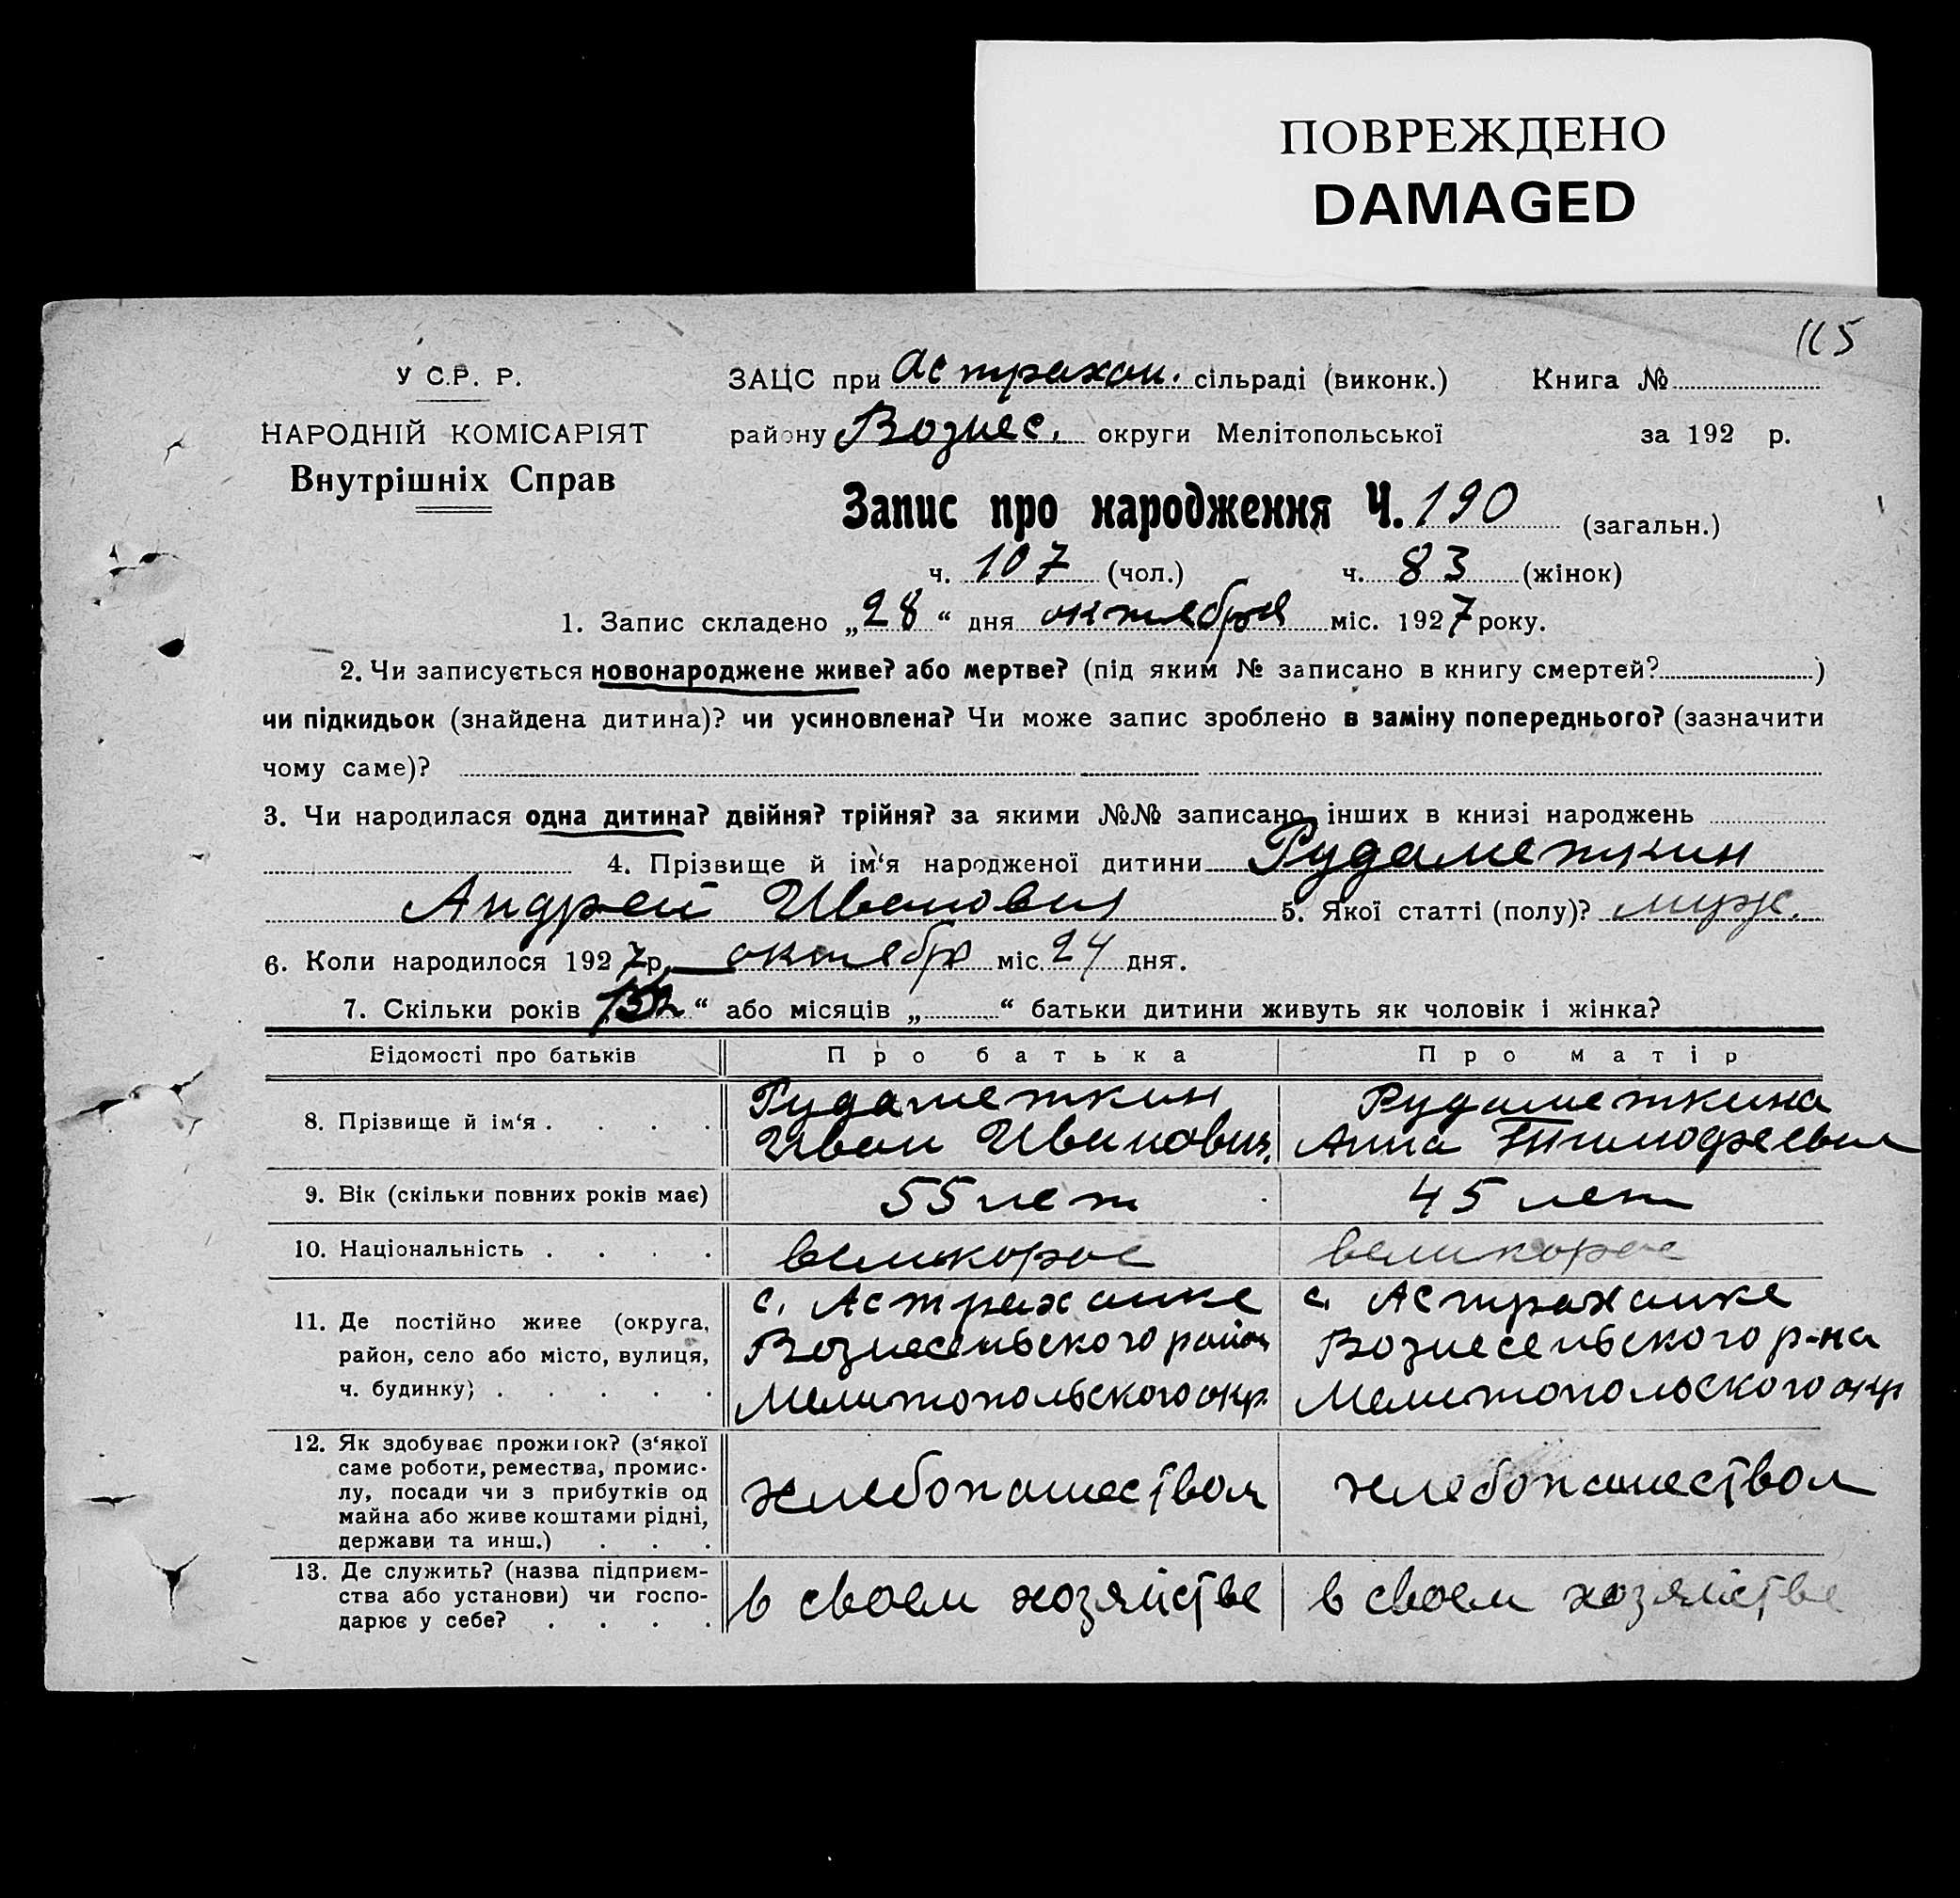 ПОВРЕЖДЕНО
DAMAGED
165
У С.Р. Р.
ЗАЦС при Астрахан. сільраді (виконк.) Книга №
НАРОДНІЙ КОМІСАРІЯТ
району Вознес. округи Мелітопольської за 192 р.
Внутрішніх Справ
Запис про народження Ч. 190 (загальн.)
ч. 107 (чол.) ч. 83 (жінок)
1. Запис складено „28“ дня октября міс. 1927 року.
2. Чи записується новонароджене живе? або мертве? (під яким № записано в книгу смертей? )
чи підкидьок (знайдена дитина)? чи усиновлена? Чи може запис зроблено в заміну попереднього? (зазначити
чому саме)?
3. Чи народилася одна дитина? двійня? трійня? за якими №№ записано інших в книзі народжень
4. Прізвище й ім‘я народженої дитини Рудаметкин
Андрей Иванович 5. Якої статті (полу)? муж.
6. Коли народилося 1927 р. октября міс. 24 дня.
7. Скільки років „ “ або місяців „ “ батьки дитини живуть як чоловік і жінка?
Відомості про батьків Про батька Про матір
8. Прізвище й ім‘я . . . . Рудаметкин Иван Иванович. Рудаметкина Анна Тимофеевна
9. Вік (скільки повних років має) 55 лет 45 лет
10. Національність . . . . великорос великорос
11. Де постійно живе (округа, с. Астраханке с. Астраханке
район, село або місто, вулиця, Вознесеньского район Вознесеньского р-на
ч. будинку) . . . . . Мелитопольского окр. Мелитопольского окр
12. Як здобуває прожиток? (з‘якої
саме роботи, ремества, промис-
лу, посади чи з прибутків од хлебопашеством хлебопашеством
майна або живе коштами рідні,
держави та инш.) . . .
13. Де служить? (назва підприєм-
ства або установи) чи госпо- в своем хозяйстве в своем хозяйстве
дарює у себе? . . . .